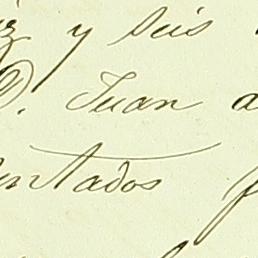 y Seis
D. Juan a
ntados